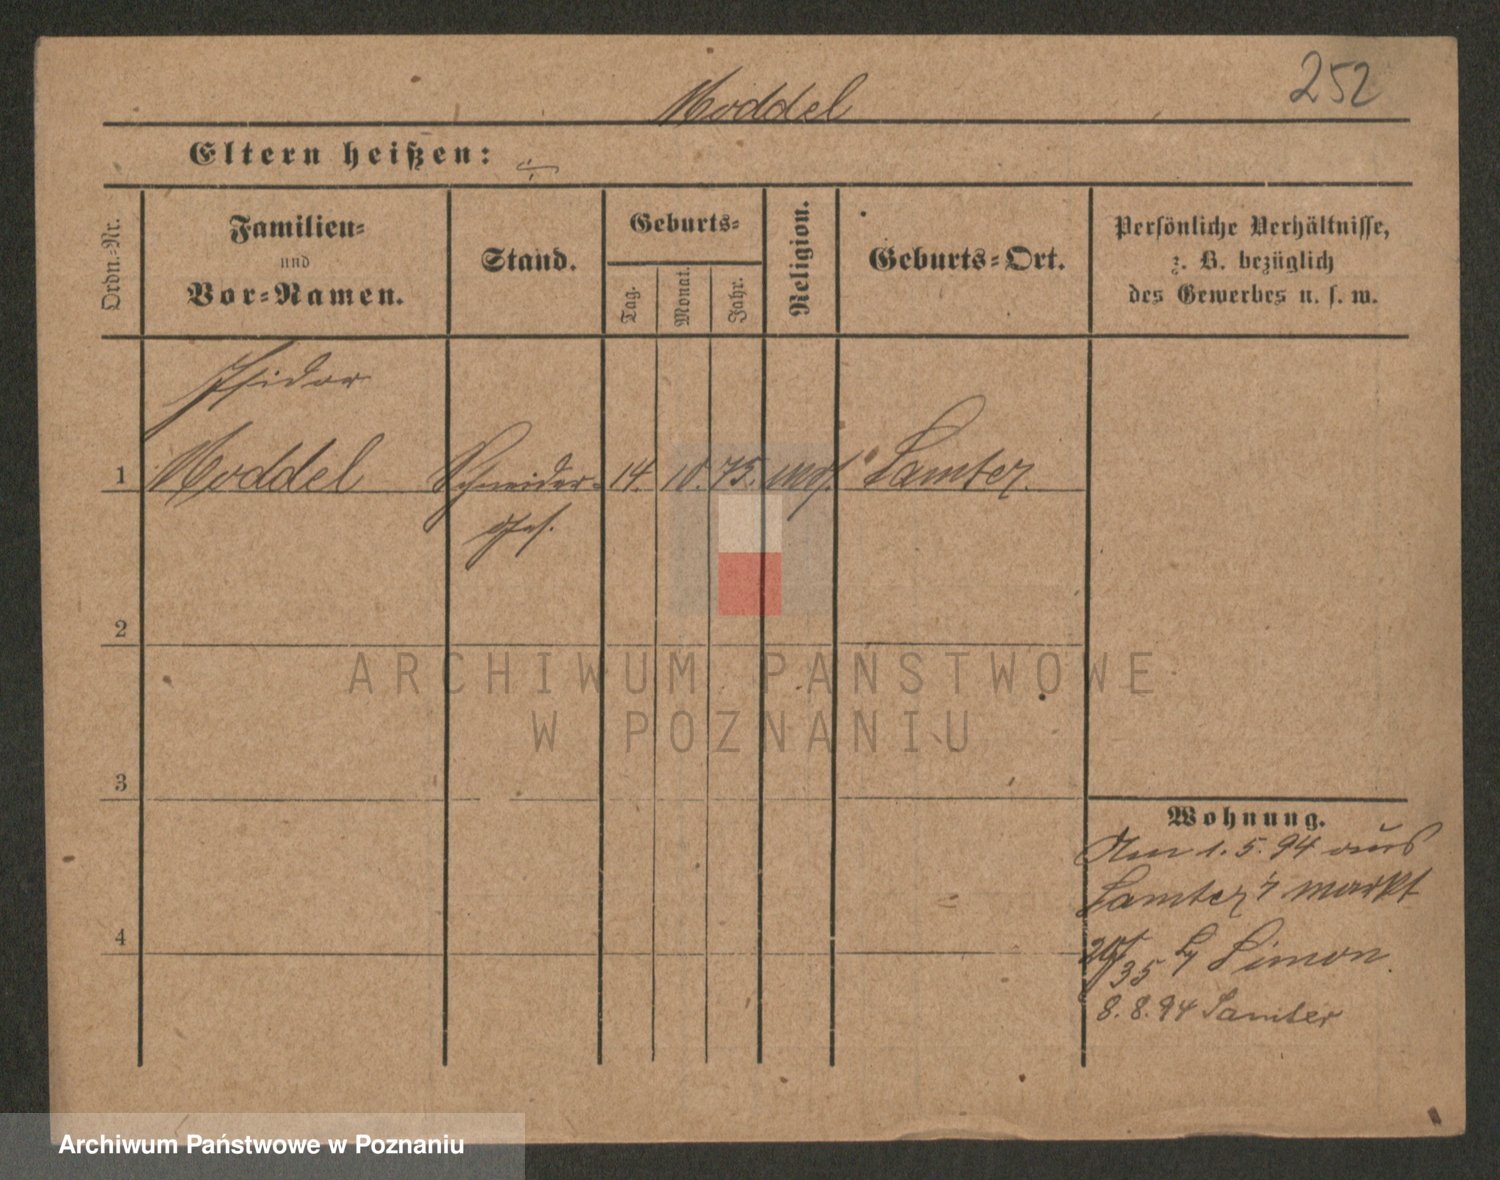 252
Moddel
Eltern heißen: ÷
Ordn.-Nr.
Familien-
und
Vor-Namen.
Stand.
Geburts-
Tag.
Monat.
Jahr.
Religion.
Geburts-Ort.
Persönliche Verhältnisse,
z. B. bezüglich
des Gewerbes u. s. w.
Isidor
1 Moddel Schneider- 14. 10. 75. mos. Samter.
ges.
2
3
4
Wohnung.
Am 1. 5. 94 aus
Samter, markt
35 Simon
8. 8. 94 Samter
ARCHIWUM PAŃSTWOWE
W POZNANIU
Archiwum Państwowe w Poznaniu